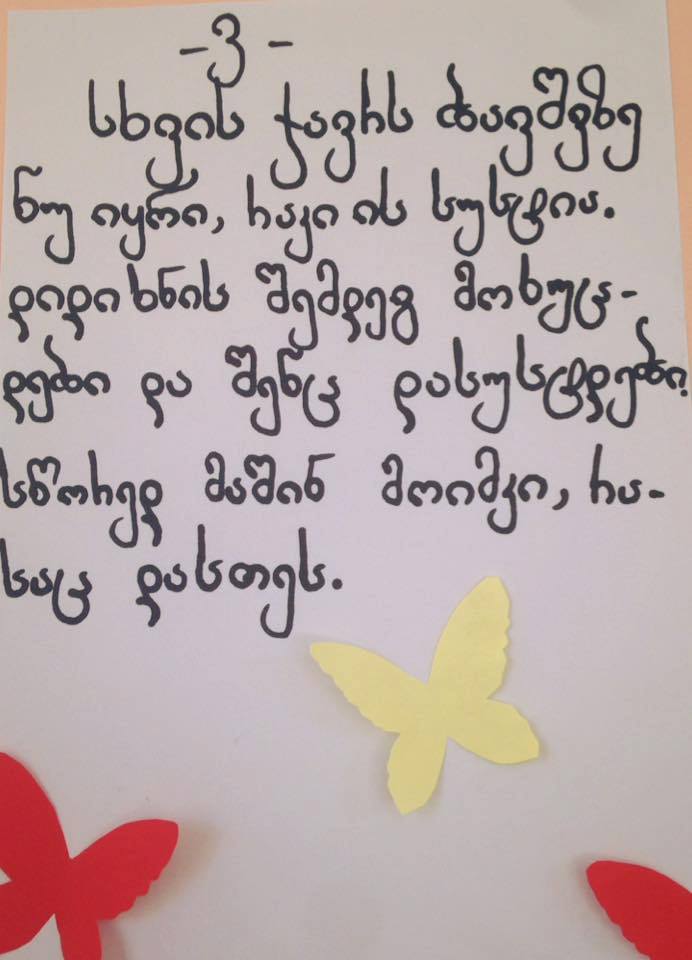 - 3 -
სხვის ჯავრს ბავშვზე
ნუ იყრი, რაკი ის სუსტია.
დიდი ხნის შემდეგ მოხუც-
დები და შენც დასუსტდები.
სწორედ მაშინ მოიმკი, რა-
საც დასთეს.